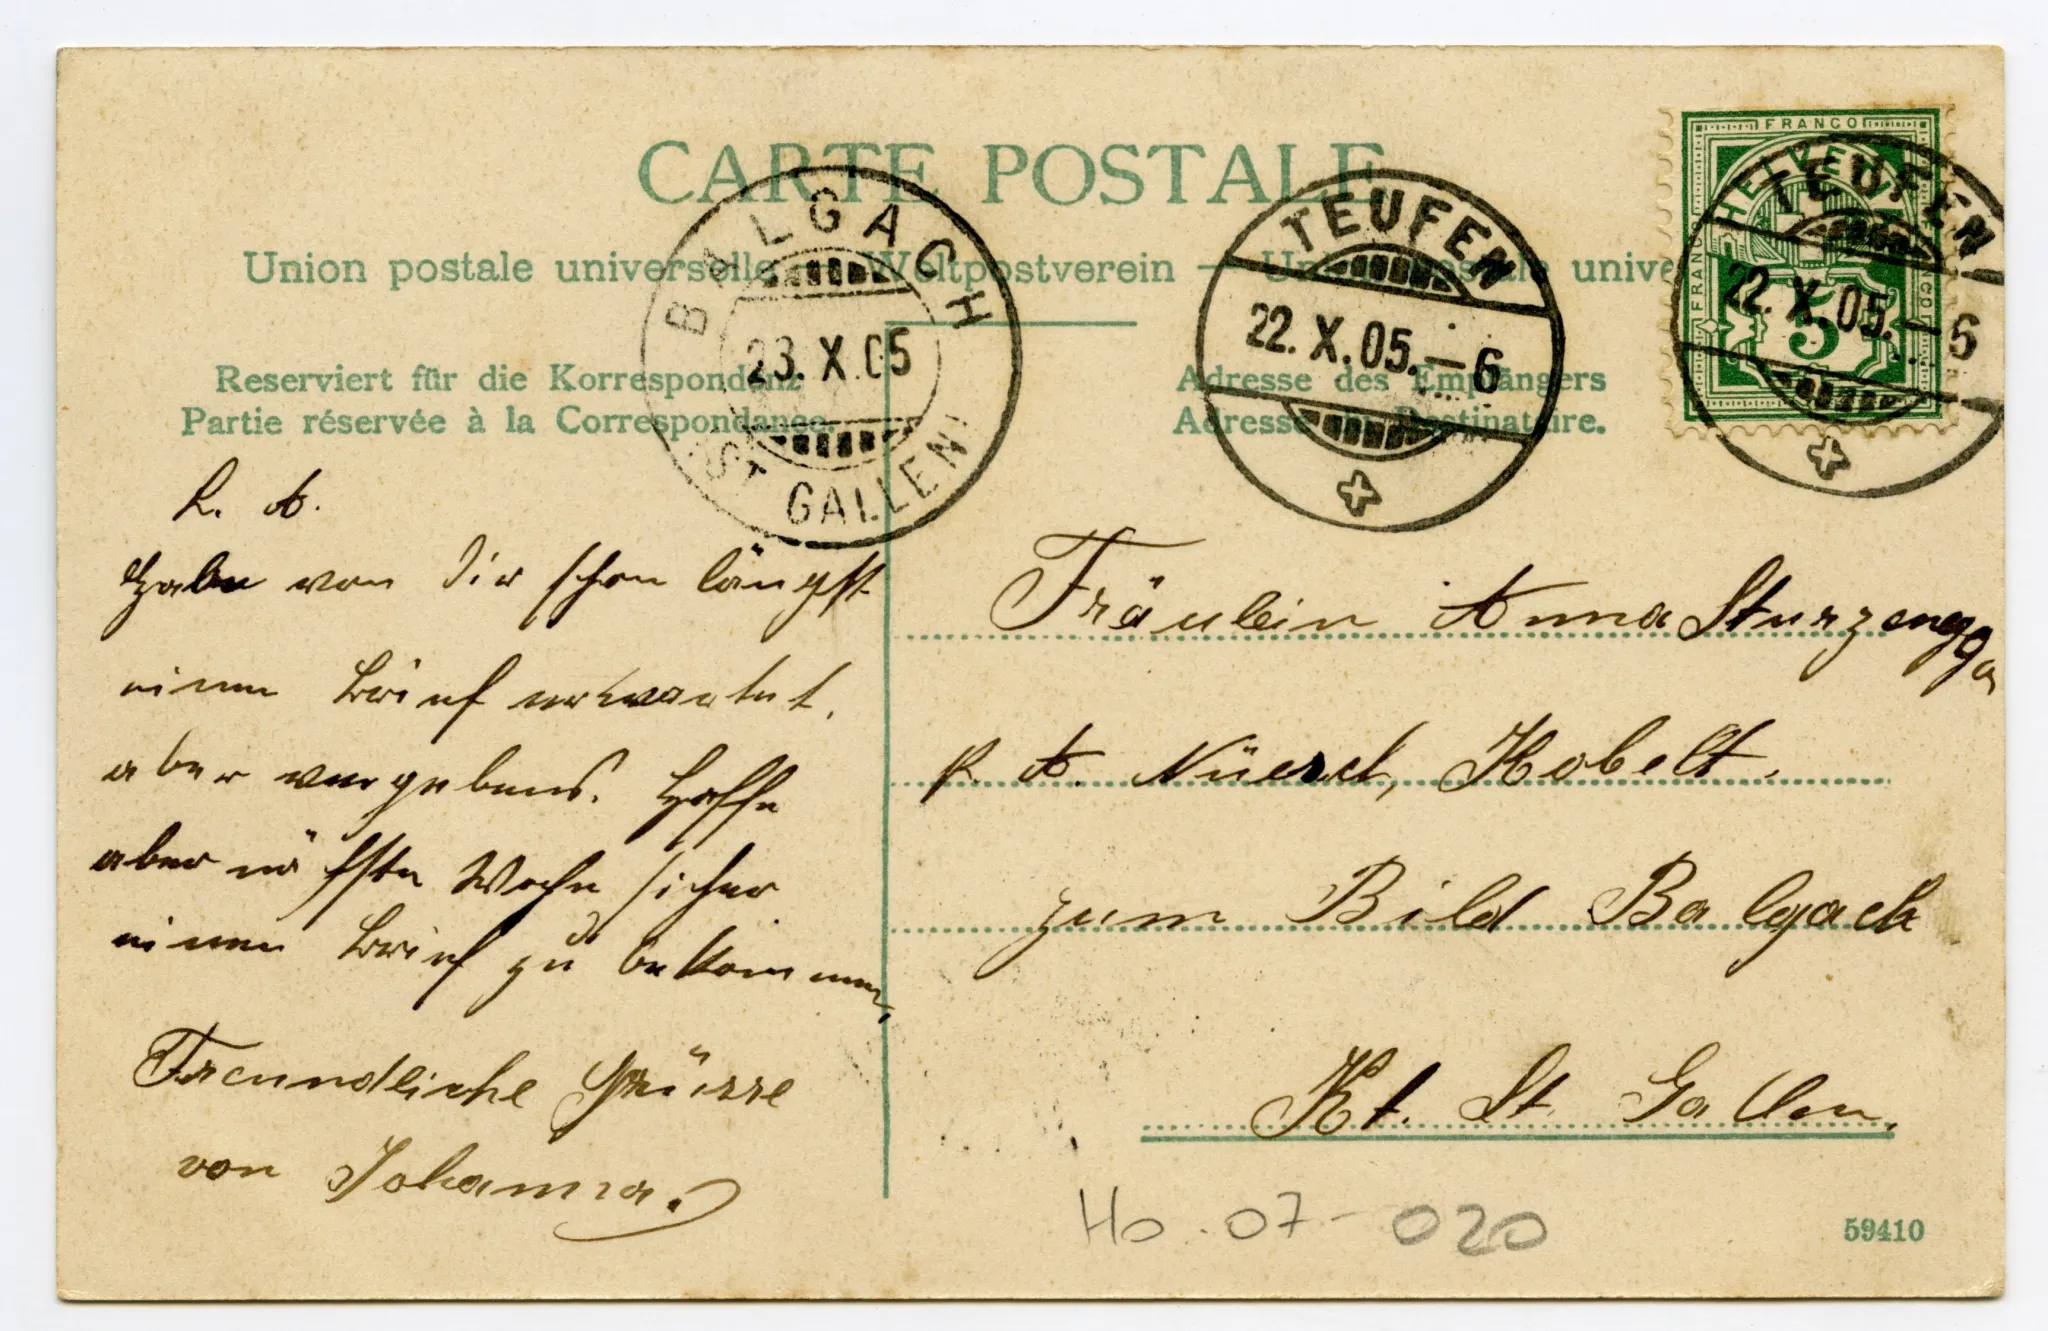 CARTE POSTALE
Union postale universelle. — Weltpostverein — Union postale unive
BALGACH
23. X. 05
(ST. GALLEN)
TEUFEN
22. X. 05. — 6
FRANCO
HELVETIA
FRANCO
FRANCO
5
TEUFEN
22. X. 05. — 6
Reserviert für die Korrespondenz
Partie réservée à la Correspondance.
Adresse des Empfängers
Adresse du Destinataire.
L. A.
Habe von Dir schon längst
einen Brief erwartet,
aber vergebens. Hoffe
aber nächste Woche sicher
einen Brief zu bekommen,
Freundliche Grüsse
von Johanna.
Fräulein Anna Sturzenegger
p. A. Nüesch, Kobelt.
zum Bild Balgach
Kt. St. Gallen.
Ho. 07-020
59410